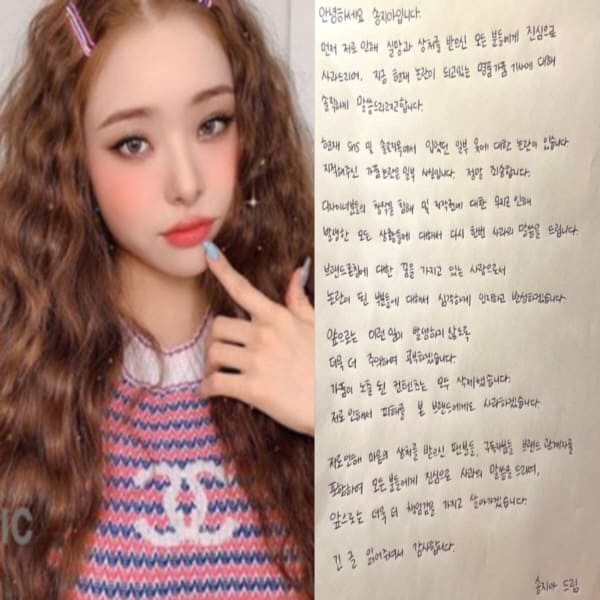 안녕하세요 송지아입니다.
먼저 저로 인해 실망과 상처를 받으신 모든 분들에게 진심으로
사과드리며, 지금 현재 논란이 되고있는 명품가품 기사에 대해
솔직하게 말씀드리려고합니다.
현재 SNS 및 솔로지옥에서 입었던 일부 옷에 대한 논란이 있습니다
지적해주신 가품논란은 일부 사실입니다. 정말 죄송합니다.
디자이너분들의 창작물 침해 및 저작권에 대한 무지로 인해
발생한 모든 상황들에 대해서 다시 한번 사과의 말씀을 드립니다.
브랜드론칭에 대한 꿈을 가지고 있는 사람으로서
논란이 된 부분들에 대해서 심각하게 인지하고 반성하겠습니다
앞으로는 이런 일이 발생하지 않도록
더욱 더 주의하며 공부하겠습니다.
가품이 노출 된 컨텐츠는 모두 삭제했습니다.
저로 인해서 피해를 본 브랜드에게도 사과하겠습니다.
저로인해 마음의 상처를 받으신 팬분들, 구독자분들 브랜드 관계자를
포함하여 모든 분들에게 진심으로 사과의 말씀을 드리며,
앞으로는 더욱 더 책임감을 가지고 살아가겠습니다.
긴 글 읽어주셔서 감사합니다.
송지아 드림
IC